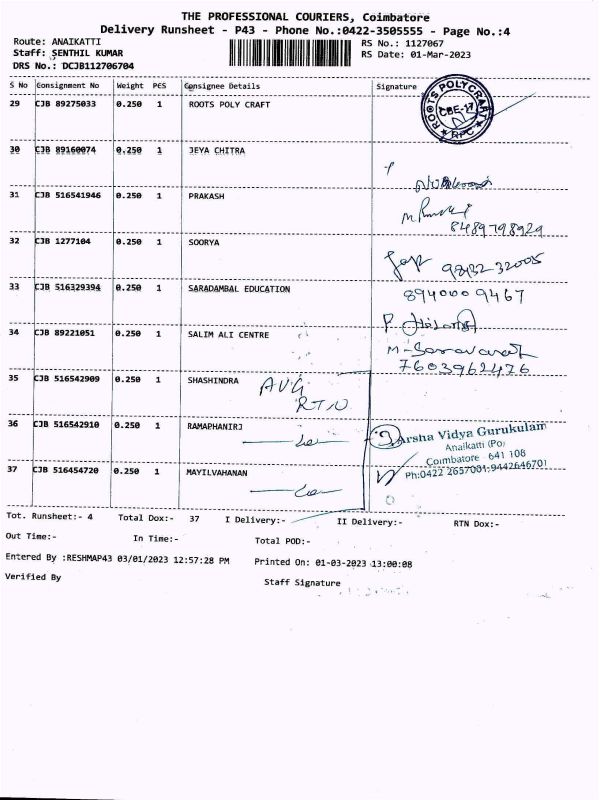 THE PROFESSIONAL COURIERS, Coimbatore
Delivery Runsheet - P43 - Phone No.:0422-3505555 - Page No.:4
Route: ANAIKATTI
RS No.: 1127067
Staff: SENTHIL KUMAR
RS Date: 01-Mar-2023
DRS No.: DCJB112706704
S No Consignment No Weight PES Consignee Details Signature
29 CJB 89275033 0.250 1 ROOTS POLY CRAFT
ROOTS POLYCRAFT
CBE-17
★ RPC ★
30 CJB 89160074 0.250 1 JEYA CHITRA
31 CJB 516541946 0.250 1 PRAKASH
8489798929
32 CJB 1277104 0.250 1 SOORYA
98432 32005
33 CJB 516329394 0.250 1 SARADAMBAL EDUCATION
8940009467
34 CJB 89221051 0.250 1 SALIM ALI CENTRE
M-Saravanan
7603962476
35 CJB 516542909 0.250 1 SHASHINDRA
AVG
RTN
36 CJB 516542910 0.250 1 RAMAPHANIRJ
Arsha Vidya Gurukulam
Anaikatti (Po)
Coimbatore - 641 108
Ph:0422 2657001, 9442646701
37 CJB 516454720 0.250 1 MAYILVAHANAN
Tot. Runsheet:- 4 Total Dox:- 37 I Delivery:- II Delivery:- RTN Dox:-
Out Time:- In Time:- Total POD:-
Entered By :RESHMAP43 03/01/2023 12:57:28 PM Printed On: 01-03-2023 13:00:08
Verified By Staff Signature